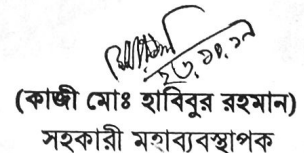 ২৩.১০.১৭
(কাজী মোঃ হাবিবুর রহমান)
সহকারী মহাব্যবস্থাপক